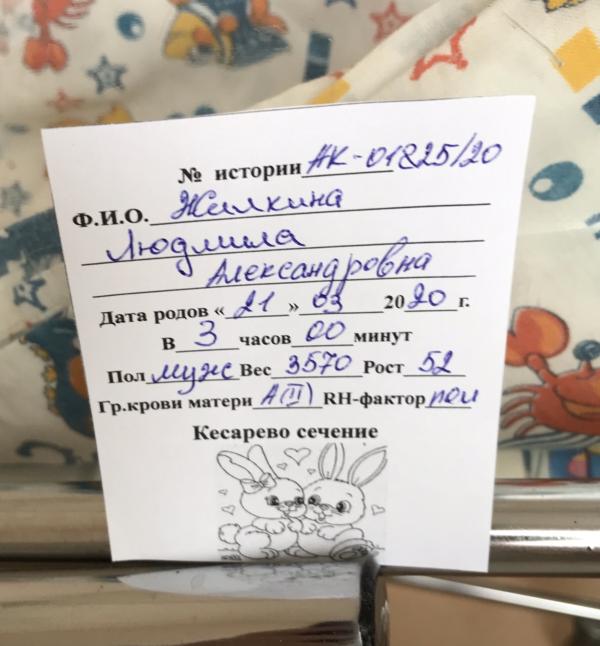 № истории АК-01825/20
Ф.И.О. Жилкина
Людмила
Александровна
Дата родов «21» 03 2020 г.
В 3 часов 00 минут
Пол муж Вес 3570 Рост 52
Гр.крови матери А(II) RH-фактор пол
Кесарево сечение